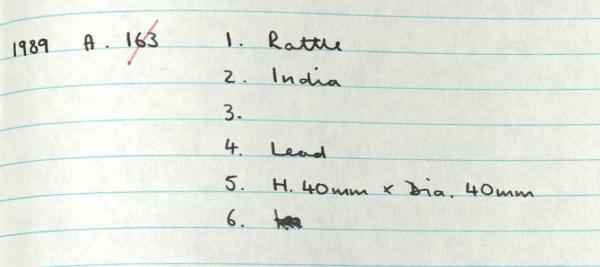 1989 A. 163 1. Rattle
2. India
3.
4. Lead
5. H. 40mm x Dia. 40mm
6.